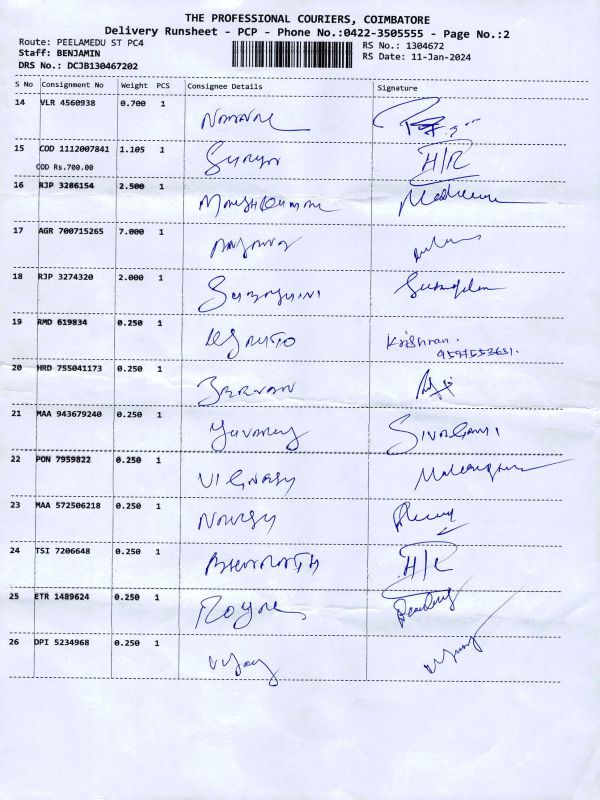 THE PROFESSIONAL COURIERS, COIMBATORE
Delivery Runsheet - PCP - Phone No.:0422-3505555 - Page No.:2
Route: PEELAMEDU ST PC4
RS No.: 1304672
Staff: BENJAMIN
RS Date: 11-Jan-2024
DRS No.: DCJB130467202
S No Consignment No Weight PCS Consignee Details Signature
14 VLR 4560938 0.700 1
15 COD 1112007841 1.105 1 Surya H/R
COD Rs.700.00
16 RJP 3286154 2.500 1
17 AGR 700715265 7.000 1
18 RJP 3274320 2.000 1
19 RMD 619834 0.250 1 Krishnan.
9597553631.
20 HRD 755041173 0.250 1
21 MAA 943679240 0.250 1 Yuvaraj SIVAGAMI
22 PON 7959822 0.250 1 VIGNESH
23 MAA 572506218 0.250 1
24 TSI 7206648 0.250 1 BHARATH H/R
25 ETR 1489624 0.250 1
26 DPI 5234968 0.250 1 Vijay